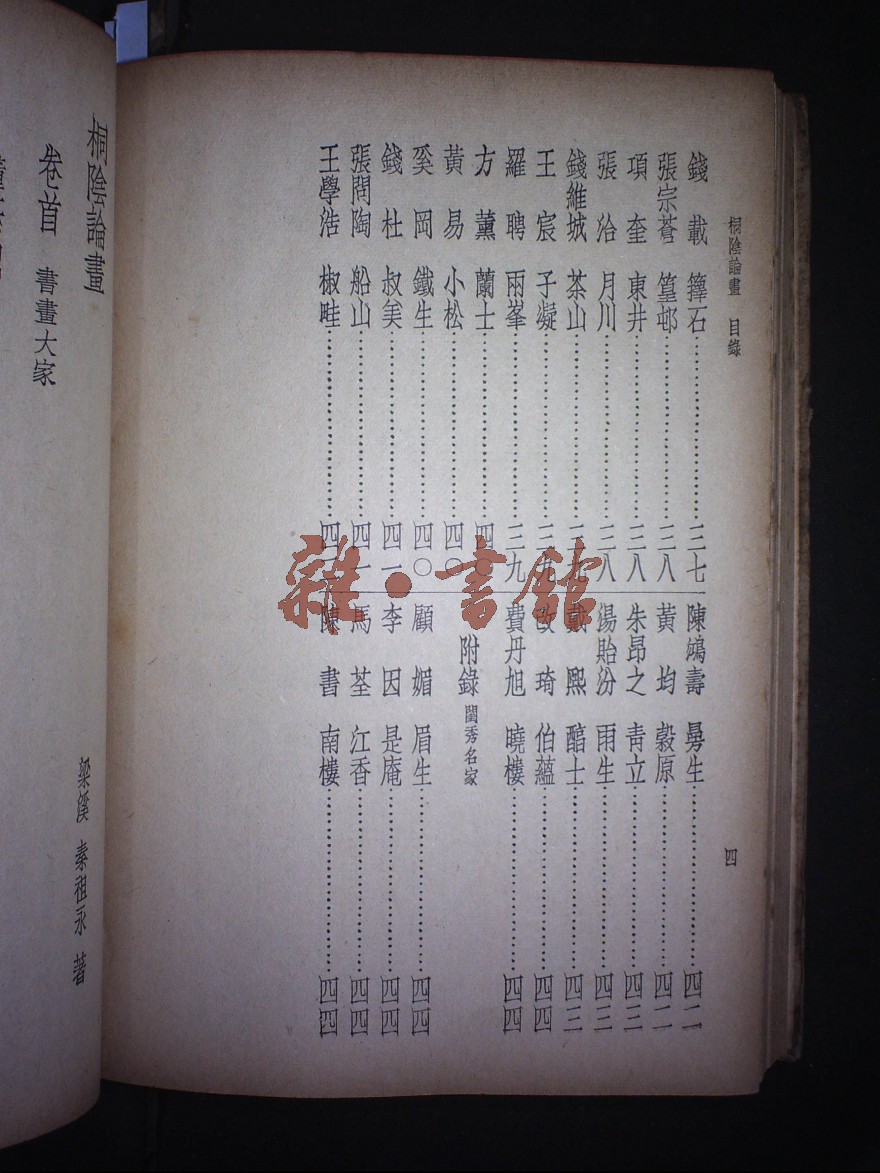 桐陰論畫 目錄
四
錢載 籜石……三七
張宗蒼 篁邨……三八
項奎 東井……三八
張洽 月川……三八
錢維城 茶山……九
王宸 子凝……三九
羅聘 雨峯……三九
方薰 蘭士……四〇
黃易 小松……四〇
奚岡 鐵生……四〇
錢杜 叔美……四一
張問陶 船山……四一
王學浩 椒畦……四
陳鴻壽 曼生……四二
黃均 穀原……四二
朱昂之 青立……四三
湯貽汾 雨生……四三
戴熙 醇士……四三
改琦 伯蘊……四四
費丹旭 曉樓……四四
附錄 閨秀名家
顧媚 眉生……四四
李因 是庵……四四
馬荃 江香……四四
陳書 南樓……四四
桐陰論畫
梁溪 秦祖永 著
卷首 書畫大家
雜·書館